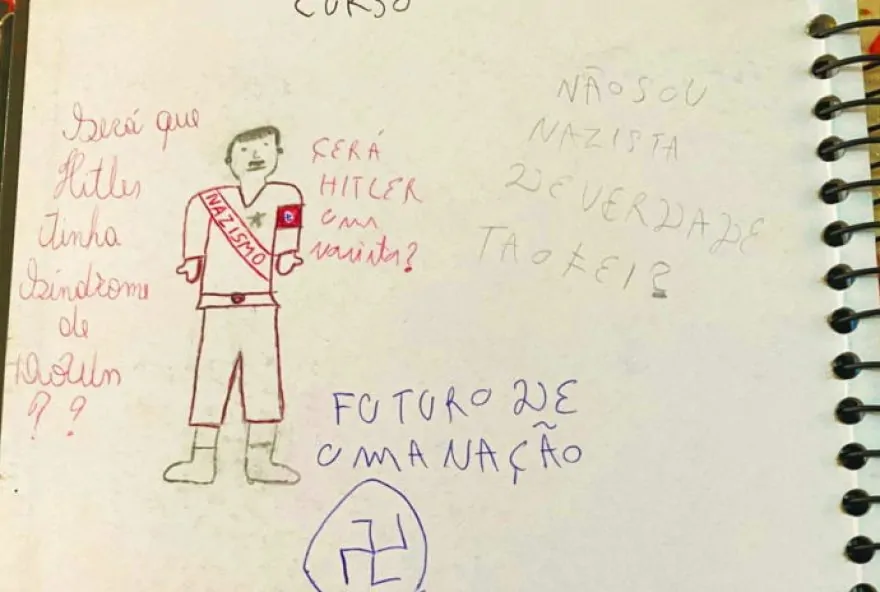 CURSO
Será que
Hitler
Tinha
Síndrome
de
Down
? ?
NAZISMO
ÇERÁ
HITLER
um
nazista?
NÃO SOU
NAZISTA
DE VERDADE
TA OKEI?
FUTURO DE
UMA NAÇÃO